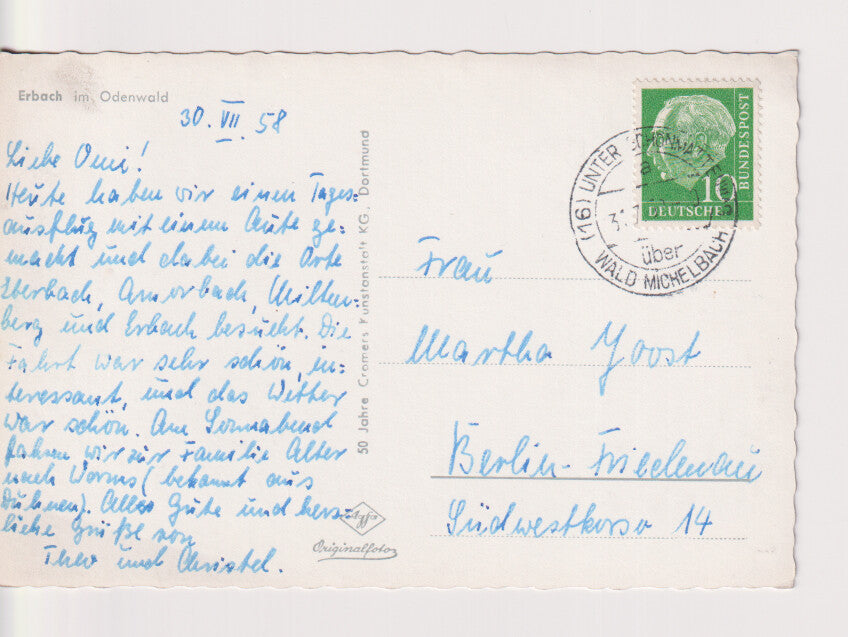 Erbach im Odenwald
30. VII. 58
Liebe Omi!
Heute haben wir einen Tages-
ausflug mit einem Auto ge-
macht und dabei die Orte
Eberbach, Amorbach, Milten-
berg und Erbach besucht. Die
Fahrt war sehr schön, in-
teressant, und das Wetter
war schön. Am Sonnabend
fahren wir zur Familie Alter
nach Worms (bekannt aus
Duhnen). Alles Gute und herz-
liche Grüße von
Theo und Christel.
50 Jahre Cramers Kunstanstalt KG., Dortmund
Agfa
Originalfoto
10
DEUTSCHE
BUNDESPOST
(16) UNTER SCHÖNMATTE
a
über
WALD MICHELBACH
Frau
Martha Joost
Berlin-Friedenau
Südwestkorso 14